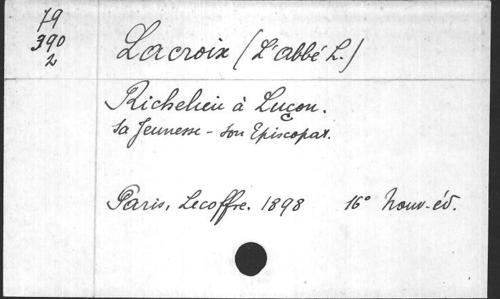 79
390
2
Lacroix (L'abbé L.)
Richelieu à Luçon.
Sa Jeunesse - Son Episcopat.
Paris, Lecoffre. 1898 16° Nouv. éd.